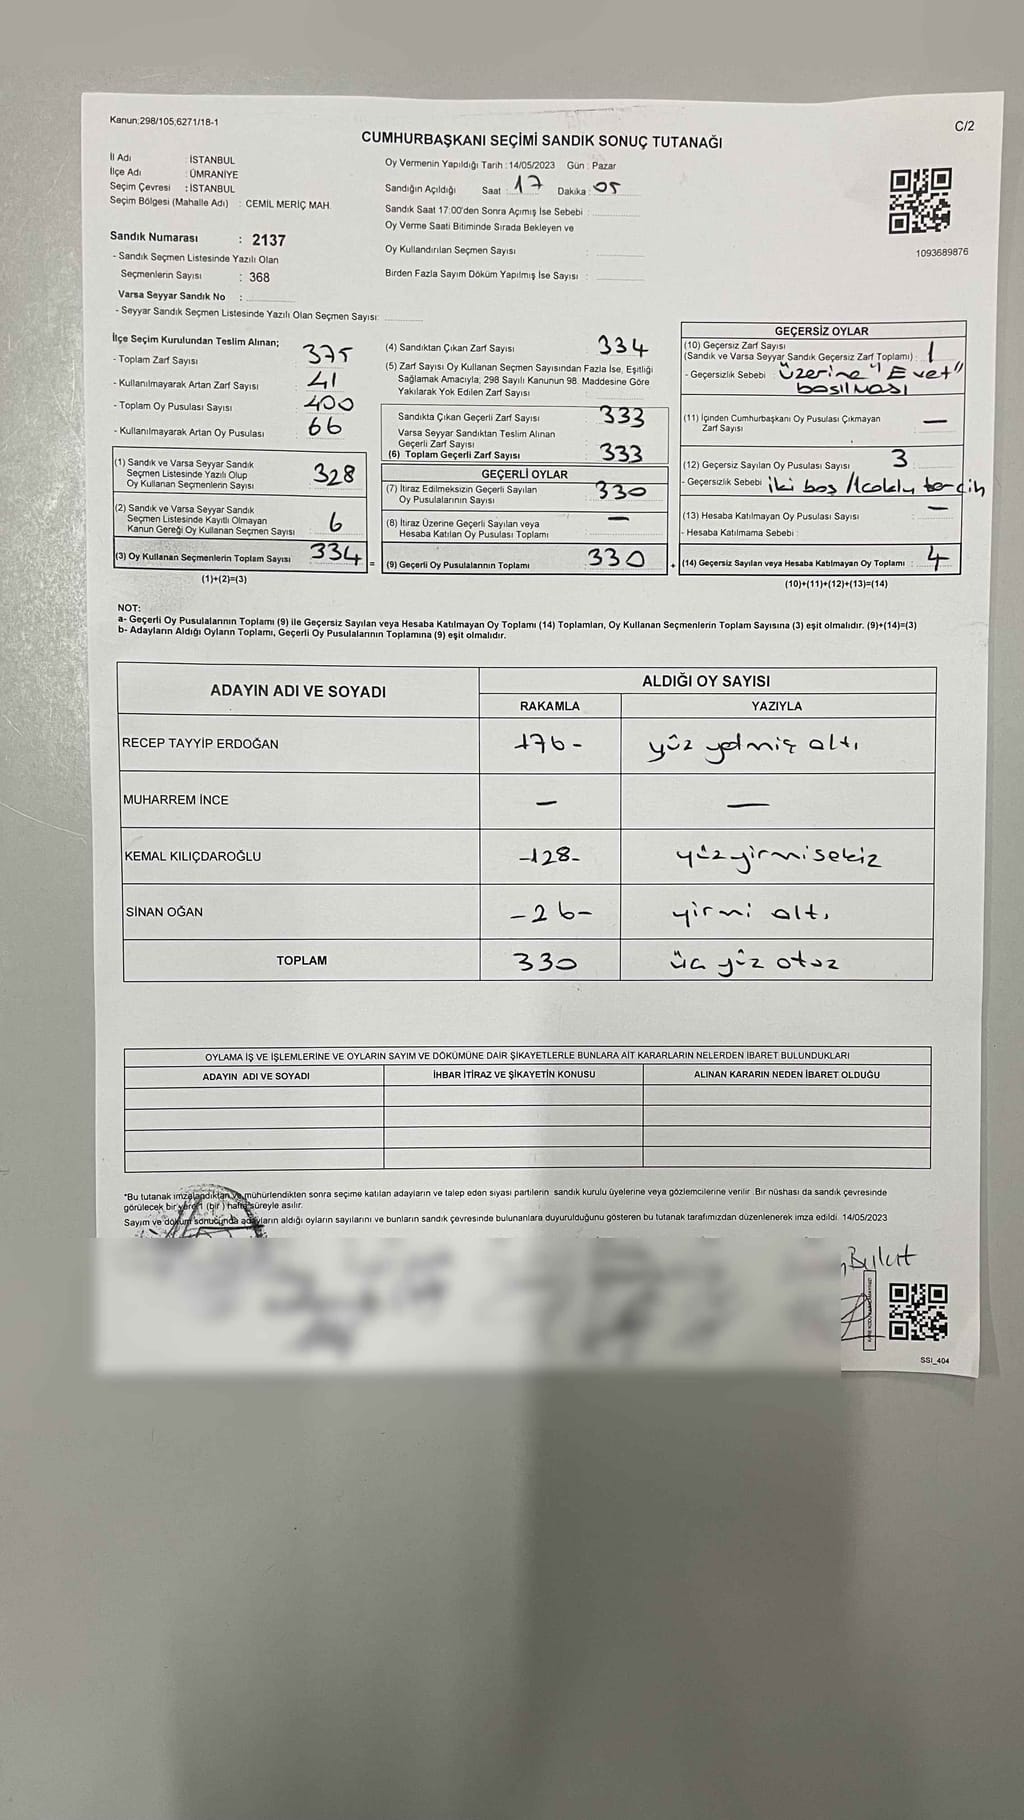 Kanun:298/105,6271/18-1
C/2
CUMHURBAŞKANI SEÇİMİ SANDIK SONUÇ TUTANAĞI
İl Adı : İSTANBUL
İlçe Adı : ÜMRANİYE
Seçim Çevresi : İSTANBUL
Seçim Bölgesi (Mahalle Adı) : CEMİL MERİÇ MAH.
Sandık Numarası : 2137
- Sandık Seçmen Listesinde Yazılı Olan
Seçmenlerin Sayısı : 368
Varsa Seyyar Sandık No :
- Seyyar Sandık Seçmen Listesinde Yazılı Olan Seçmen Sayısı:
Oy Vermenin Yapıldığı Tarih : 14/05/2023 Gün : Pazar
Sandığın Açıldığı Saat : 17 Dakika : 05
Sandık Saat 17:00'den Sonra Açımış İse Sebebi :
Oy Verme Saati Bitiminde Sırada Bekleyen ve
Oy Kullandırılan Seçmen Sayısı :
Birden Fazla Sayım Döküm Yapılmış İse Sayısı :
1093689876
İlçe Seçim Kurulundan Teslim Alınan;
- Toplam Zarf Sayısı 375
- Kullanılmayarak Artan Zarf Sayısı 41
- Toplam Oy Pusulası Sayısı 400
- Kullanılmayarak Artan Oy Pusulası 66
(1) Sandık ve Varsa Seyyar Sandık
Seçmen Listesinde Yazılı Olup
Oy Kullanan Seçmenlerin Sayısı 328
(2) Sandık ve Varsa Seyyar Sandık
Seçmen Listesinde Kayıtlı Olmayan
Kanun Gereği Oy Kullanan Seçmen Sayısı 6
(3) Oy Kullanan Seçmenlerin Toplam Sayısı 334 =
(1)+(2)=(3)
(4) Sandıktan Çıkan Zarf Sayısı 334
(5) Zarf Sayısı Oy Kullanan Seçmen Sayısından Fazla İse, Eşitliği
Sağlamak Amacıyla, 298 Sayılı Kanunun 98. Maddesine Göre
Yakılarak Yok Edilen Zarf Sayısı
Sandıkta Çıkan Geçerli Zarf Sayısı 333
Varsa Seyyar Sandıktan Teslim Alınan
Geçerli Zarf Sayısı
(6) Toplam Geçerli Zarf Sayısı 333
GEÇERLİ OYLAR
(7) İtiraz Edilmeksizin Geçerli Sayılan
Oy Pusulalarının Sayısı 330
(8) İtiraz Üzerine Geçerli Sayılan veya
Hesaba Katılan Oy Pusulası Toplamı —
(9) Geçerli Oy Pusulalarının Toplamı 330 +
GEÇERSİZ OYLAR
(10) Geçersiz Zarf Sayısı
(Sandık ve Varsa Seyyar Sandık Geçersiz Zarf Toplamı) : 1
- Geçersizlik Sebebi : üzerine "Evet"
basılması
(11) İçinden Cumhurbaşkanı Oy Pusulası Çıkmayan
Zarf Sayısı —
(12) Geçersiz Sayılan Oy Pusulası Sayısı : 3
- Geçersizlik Sebebi : iki boş / 1 çoklu tercih
(13) Hesaba Katılmayan Oy Pusulası Sayısı : —
- Hesaba Katılmama Sebebi :
(14) Geçersiz Sayılan veya Hesaba Katılmayan Oy Toplamı : 4
(10)+(11)+(12)+(13)=(14)
NOT:
a- Geçerli Oy Pusulalarının Toplamı (9) ile Geçersiz Sayılan veya Hesaba Katılmayan Oy Toplamı (14) Toplamları, Oy Kullanan Seçmenlerin Toplam Sayısına (3) eşit olmalıdır. (9)+(14)=(3)
b- Adayların Aldığı Oyların Toplamı, Geçerli Oy Pusulalarının Toplamına (9) eşit olmalıdır.
ADAYIN ADI VE SOYADI ALDIĞI OY SAYISI
RAKAMLA YAZIYLA
RECEP TAYYİP ERDOĞAN 176- yüz yetmiş altı
MUHARREM İNCE — —
KEMAL KILIÇDAROĞLU -128- yüzyirmisekiz
SİNAN OĞAN -26- yirmi altı
TOPLAM 330 üç yüz otuz
OYLAMA İŞ VE İŞLEMLERİNE VE OYLARIN SAYIM VE DÖKÜMÜNE DAİR ŞİKAYETLERLE BUNLARA AİT KARARLARIN NELERDEN İBARET BULUNDUKLARI
ADAYIN ADI VE SOYADI İHBAR İTİRAZ VE ŞİKAYETİN KONUSU ALINAN KARARIN NEDEN İBARET OLDUĞU
*Bu tutanak imzalandıktan ve mühürlendikten sonra seçime katılan adayların ve talep eden siyasi partilerin sandık kurulu üyelerine veya gözlemcilerine verilir. Bir nüshası da sandık çevresinde
görülecek bir yere 1 (bir) hafta süreyle asılır.
Sayım ve döküm sonucunda adayların aldığı oyların sayılarını ve bunların sandık çevresinde bulunanlara duyurulduğunu gösteren bu tutanak tarafımızdan düzenlenerek imza edildi. 14/05/2023
Bulut
SSI_404